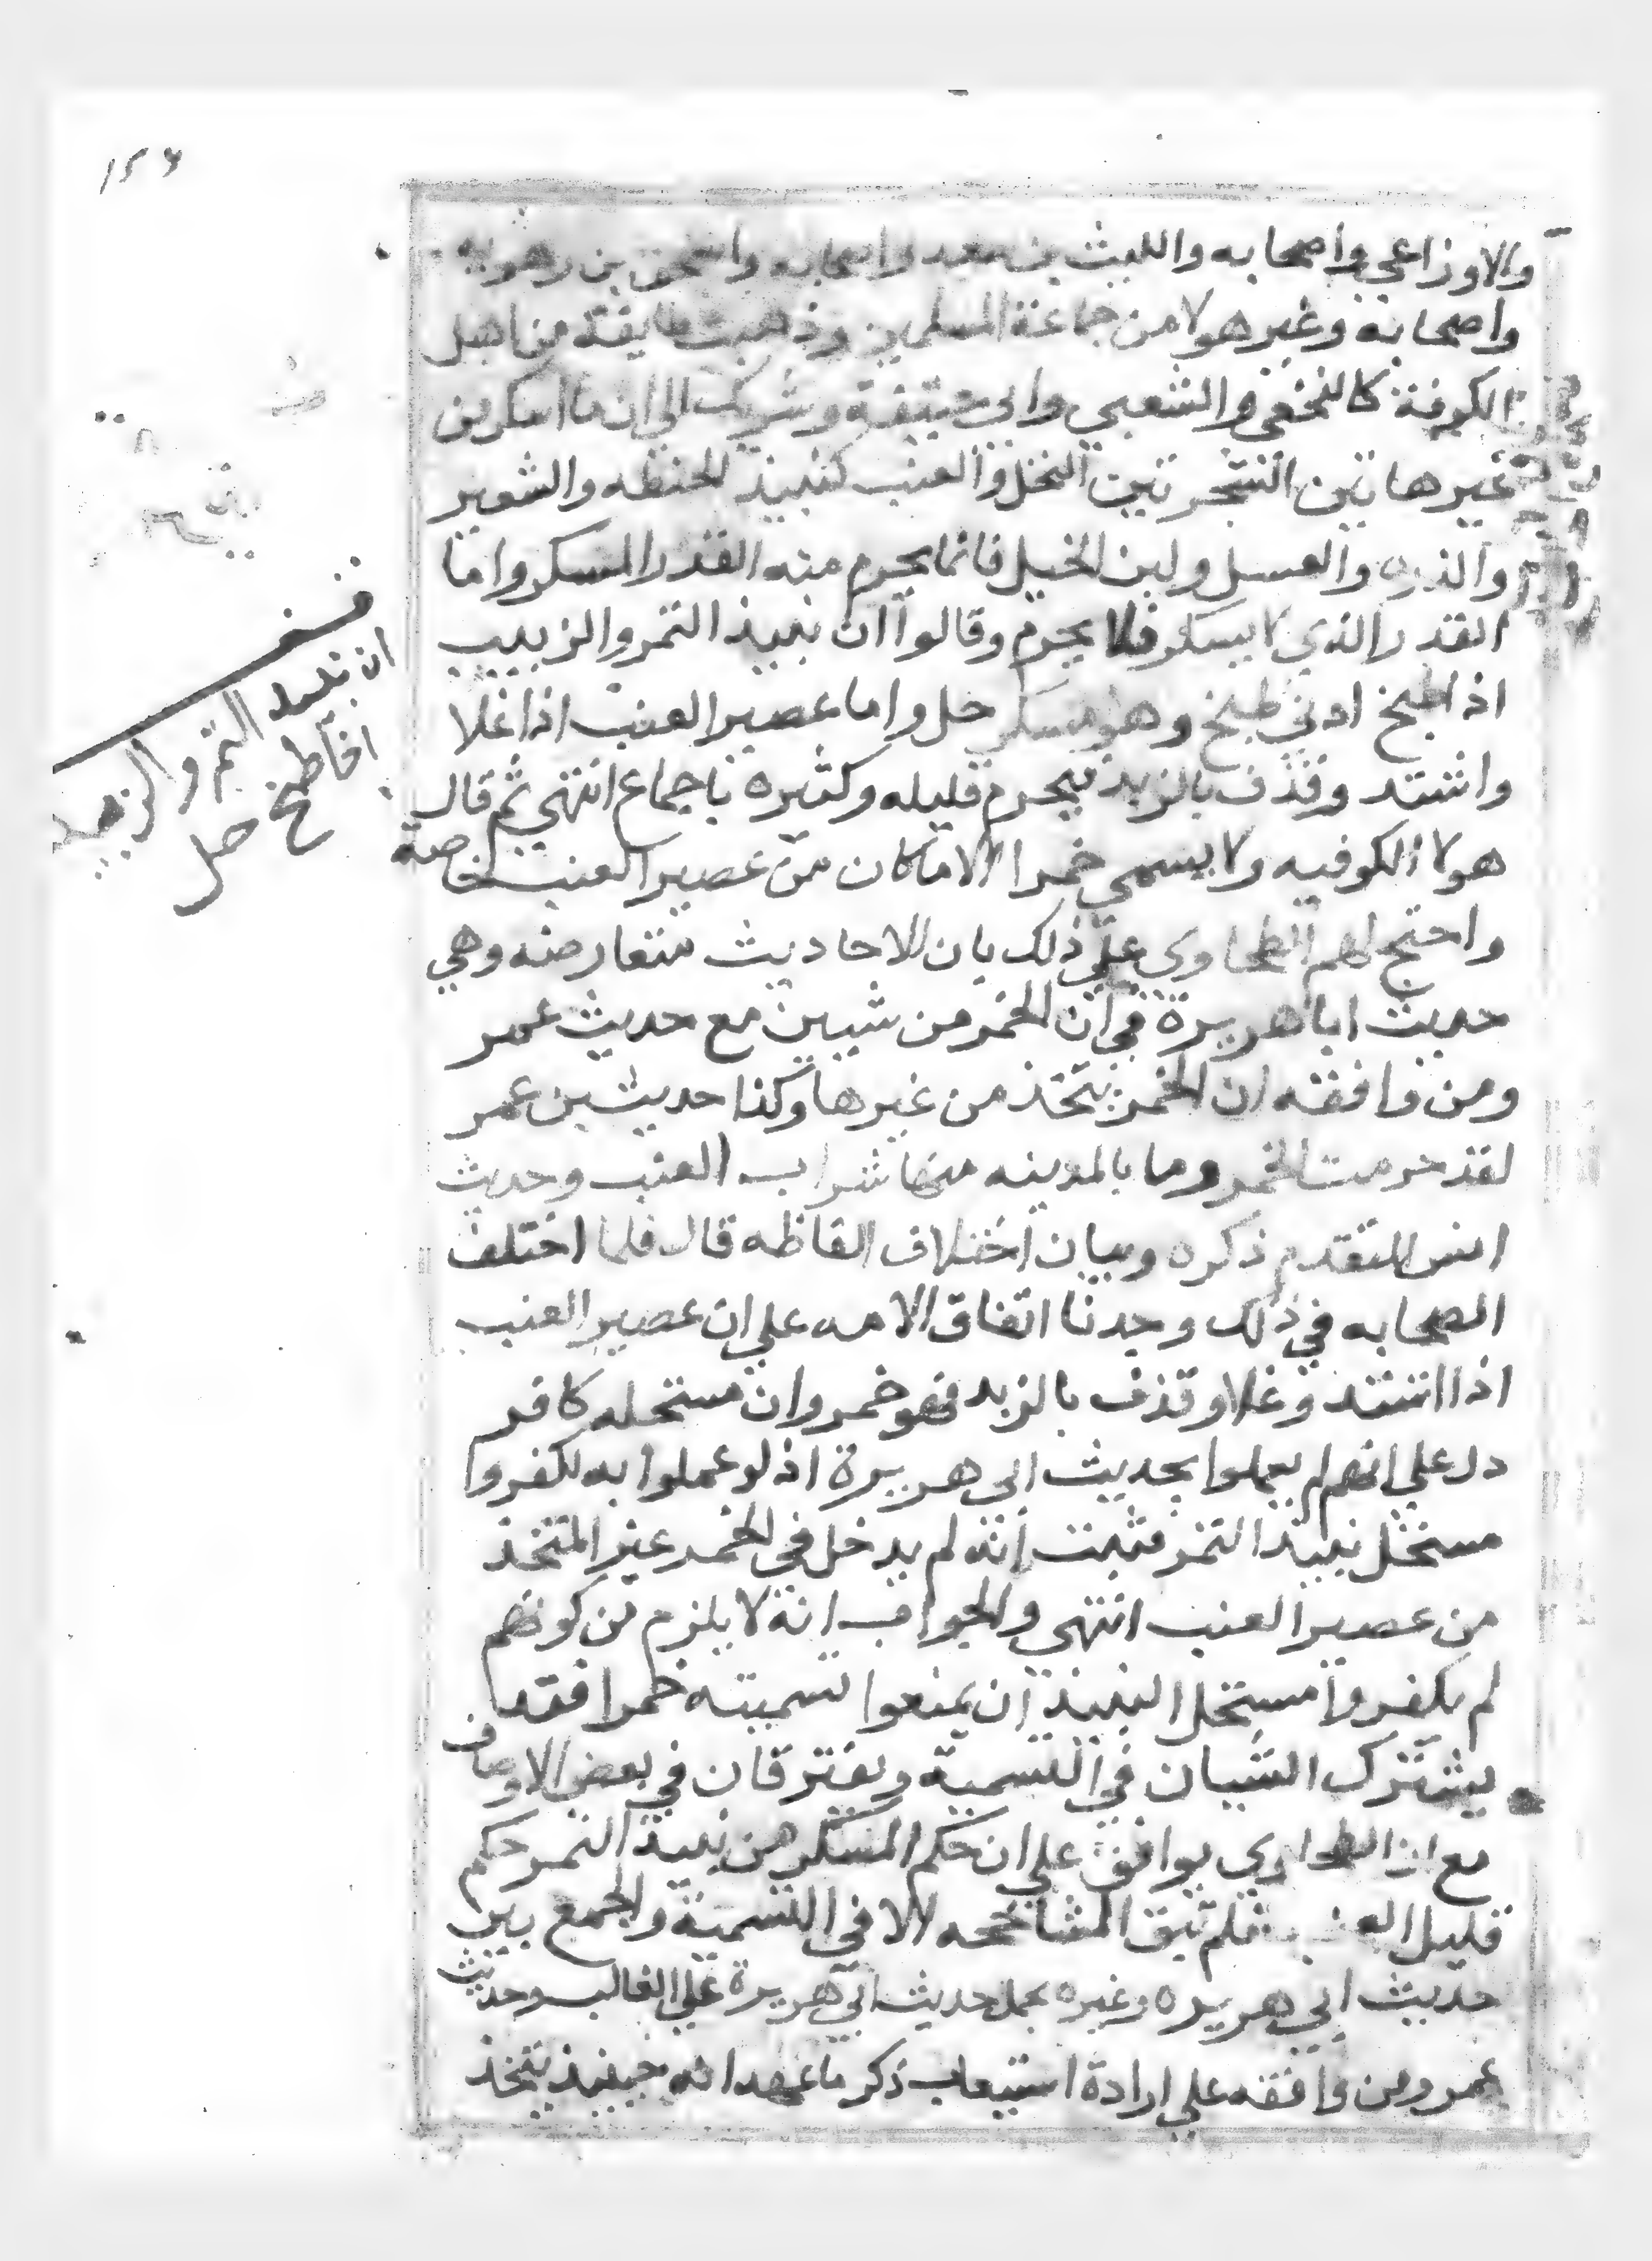 ١٥٦
والاوزاعي واصحابه والليث بن سعد واصحابه واسحق بن رهويه
واصحابه وغير هولا من جماعة المسلمين وذهبت طايفة من اهل
الكوفة كالنخعي والشعبي وابي حنيفة وشريك الي ان ما اسكر من
غير هاتين الشجرتين النخل والعنب كنبيذ الحنطه والشعير
والذره والعسل ولبن الخيل فانما يحرم منه القدر المسكر واما
القدر الذي لا يسكر فلا يحرم وقالوا ان نبيذ التمر والزبيب
اذا طبخ ادني طبخ وهو مسكر حل واما عصير العنب اذا غلا
واشتد وقذف بالزبد فيحرم قليله وكثيره باجماع انتهي ثم قال
هولا الكوفيه ولا يسمي خمرا الا ما كان من عصير العنب خاصة
واحتج لهم الطحاوي علي ذلك بان الاحاديث متعارضه وهي
حديث ابا هريرة في ان الخمر من شيين مع حديث عمر
ومن وافقه ان الخمر يتخذ من غيرها وكذا حديث بن عمر
لقد حرمت الخمر وما بالمدينه منها شراب العنب وحديث
انس المتقدم ذكره وبيان اختلاف الفاظه قال فلما اختلف
الصحابه في ذلك وجدنا اتفاق الامه علي ان عصير العنب
اذا اشتد وغلا وقذف بالزبد فهو خمر وان مستحله كافر
دل علي انهم لم يعملوا بحديث ابي هريرة اذ لو عملوا به لكفروا
مستحل نبيذ التمر فثبت انه لم يدخل في الخمر غير المتخذ
من عصير العنب انتهي والجواب انه لا يلزم من كونهم
لم يكفروا مستحل النبيذ ان يمنعوا تسميته خمرا فقد
يشترك الشيان في التسمية ويفترقان في بعض الاوصاف
مع ان الطحاوي يوافق علي ان حكم المسكر من نبيذ التمر حكم
قليل العنب فلم تبق المشاححه الا في التسمية والجمع بين
حديث ابي هريره وغيره بحمل حديث ابي هريرة علي الغالب وحديث
عمر ومن وافقه علي ارادة استيعاب ذكر ما عهد انه حينيذ يتخذ
ان نبيذ التمر والزبيب
اذا طبخ حل